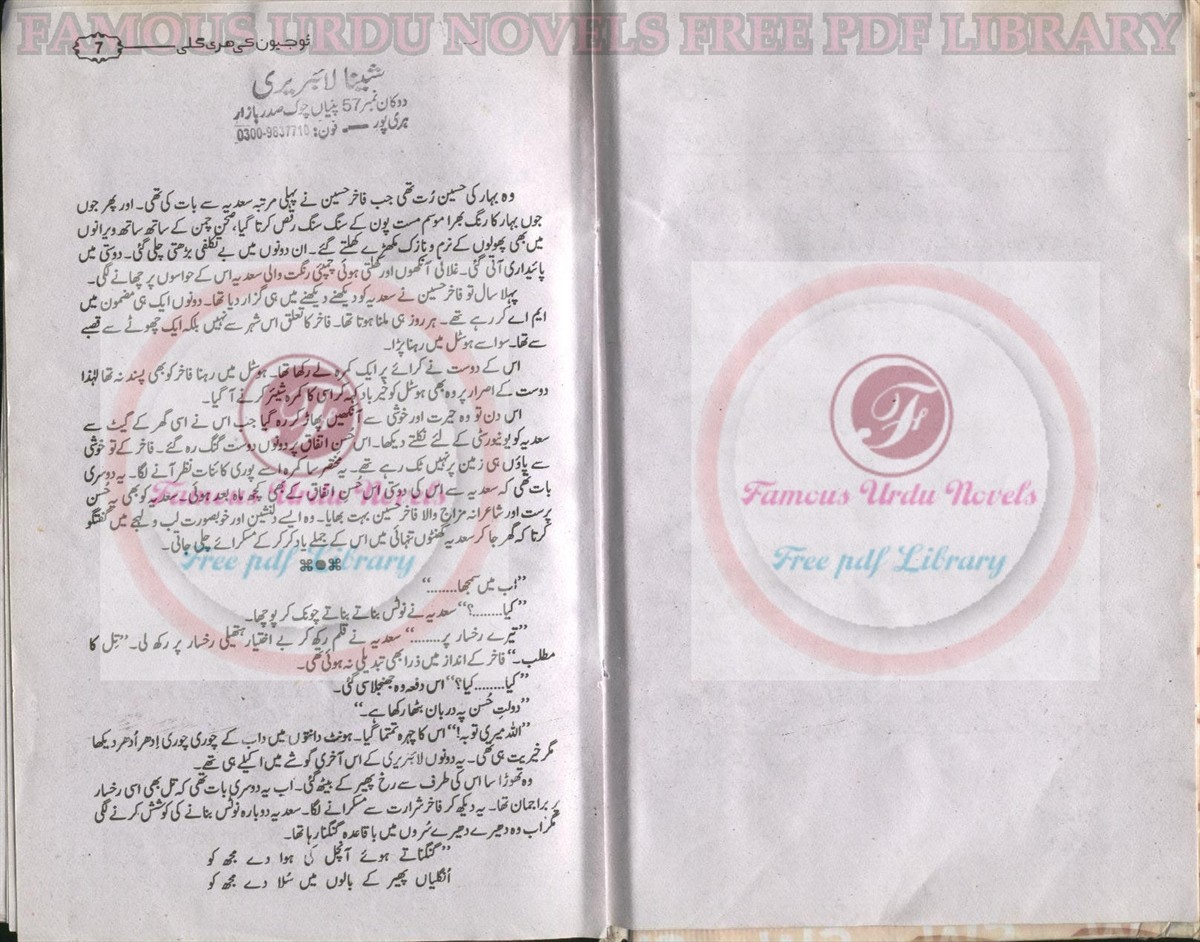 FAMOUS URDU NOVELS FREE PDF LIBRARY
تُو جیون کی ھری گلی
7
شینا لائبریری
دوکان نمبر 57 پنیاں چوک صدر بازار
ہری پور — فون: 0300-9837710
وہ بہار کی حسین رُت تھی جب فاخر حسین نے پہلی مرتبہ سعدیہ سے بات کی تھی۔ اور پھر جوں
جوں بہار کا رنگ بھرا موسم مست پون کے سنگ سنگ رقص کرتا گیا، صحنِ چمن کے ساتھ ساتھ ویرانوں
میں بھی پھولوں کے نرم و نازک مکھڑے کھلتے گئے۔ ان دونوں میں بے تکلفی بڑھتی چلی گئی۔ دوستی میں
پائیداری آتی گئی۔ غلافی آنکھوں اور کھلتی ہوئی چمپئی رنگت والی سعدیہ اس کے حواسوں پر چھانے لگی۔
پہلا سال تو فاخر حسین نے سعدیہ کو دیکھنے دیکھنے میں ہی گزار دیا تھا۔ دونوں ایک ہی مضمون میں
ایم اے کر رہے تھے۔ ہر روز ہی ملنا ہوتا تھا۔ فاخر کا تعلق اس شہر سے نہیں بلکہ ایک چھوٹے سے قصبے
سے تھا۔ سو اسے ہوسٹل میں رہنا پڑا۔
اس کے دوست نے کرائے پر ایک کمرہ لے رکھا تھا۔ ہوسٹل میں رہنا فاخر کو بھی پسند نہ تھا لہٰذا
دوست کے اصرار پر وہ بھی ہوسٹل کو خیر باد کہہ کر اسی کا کمرہ شیئر کرنے آ گیا۔
اس دن تو وہ حیرت اور خوشی سے آنکھیں پھاڑ کر رہ گیا جب اس نے اسی گھر کے گیٹ سے
سعدیہ کو یونیورسٹی کے لئے نکلتے دیکھا۔ اس حُسنِ اتفاق پر دونوں دوست گنگ رہ گئے۔ فاخر کے تو خوشی
سے پاؤں ہی زمین پر نہیں ٹک رہے تھے۔ یہ مختصر سا کمرہ اسے پوری کائنات نظر آنے لگا۔ یہ دوسری
بات تھی کہ سعدیہ سے اس کی دوستی اس حُسنِ اتفاق کے بھی کچھ ماہ بعد ہوئی۔ سعدیہ کو بھی یہ حُسن
پرست اور شاعرانہ مزاج والا فاخر حسین بہت بھایا۔ وہ ایسے دلنشین اور خوبصورت لب و لہجے میں گفتگو
کرتا کہ گھر جا کر سعدیہ گھنٹوں تنہائی میں اس کے جملے یاد کر کر کے مسکرائے چلی جاتی۔
”اب میں سمجھا........“
”کیا........؟“ سعدیہ نے نوٹس بناتے بناتے چونک کر پوچھا۔
”تیرے رخسار پر........“ سعدیہ نے قلم رکھ کر بے اختیار ہتھیلی رخسار پر رکھ لی۔ ”تِل کا
مطلب۔“ فاخر کے انداز میں ذرا بھی تبدیلی نہ ہوئی تھی۔
”کیا........ کیا؟“ اس دفعہ وہ جھنجلا سی گئی۔
”دولتِ حُسن پہ دربان بٹھا رکھا ہے۔“
”اللہ میری توبہ!“ اس کا چہرہ تمتما گیا۔ ہونٹ دانتوں میں داب کے چوری چوری اِدھر اُدھر دیکھا
مگر خیریت ہی تھی۔ یہ دونوں لائبریری کے اس آخری گوشے میں اکیلے ہی تھے۔
وہ تھوڑا سا اس کی طرف سے رخ پھیر کے بیٹھ گئی۔ اب یہ دوسری بات تھی کہ تل بھی اسی رخسار
پر براجمان تھا۔ یہ دیکھ کر فاخر شرارت سے مسکرانے لگا۔ سعدیہ دوبارہ نوٹس بنانے کی کوشش کرنے لگی
مگر اب وہ دھیرے دھیرے سُروں میں باقاعدہ گنگنا رہا تھا۔
”گنگناتے ہوئے آنچل کی ہوا دے مجھ کو
اُنگلیاں پھیر کے بالوں میں سُلا دے مجھ کو
Famous Urdu Novels
Free pdf Library
Famous Urdu Novels
Free pdf Library